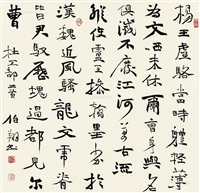 楊王盧駱當時體輕薄
為文哂未休爾曹身與名
俱滅不廢江河萬古流
縱使盧王操翰墨劣於
漢魏近風騷龍文虎脊
皆君馭歷塊過都見爾
曹 杜工部詩 伯翔